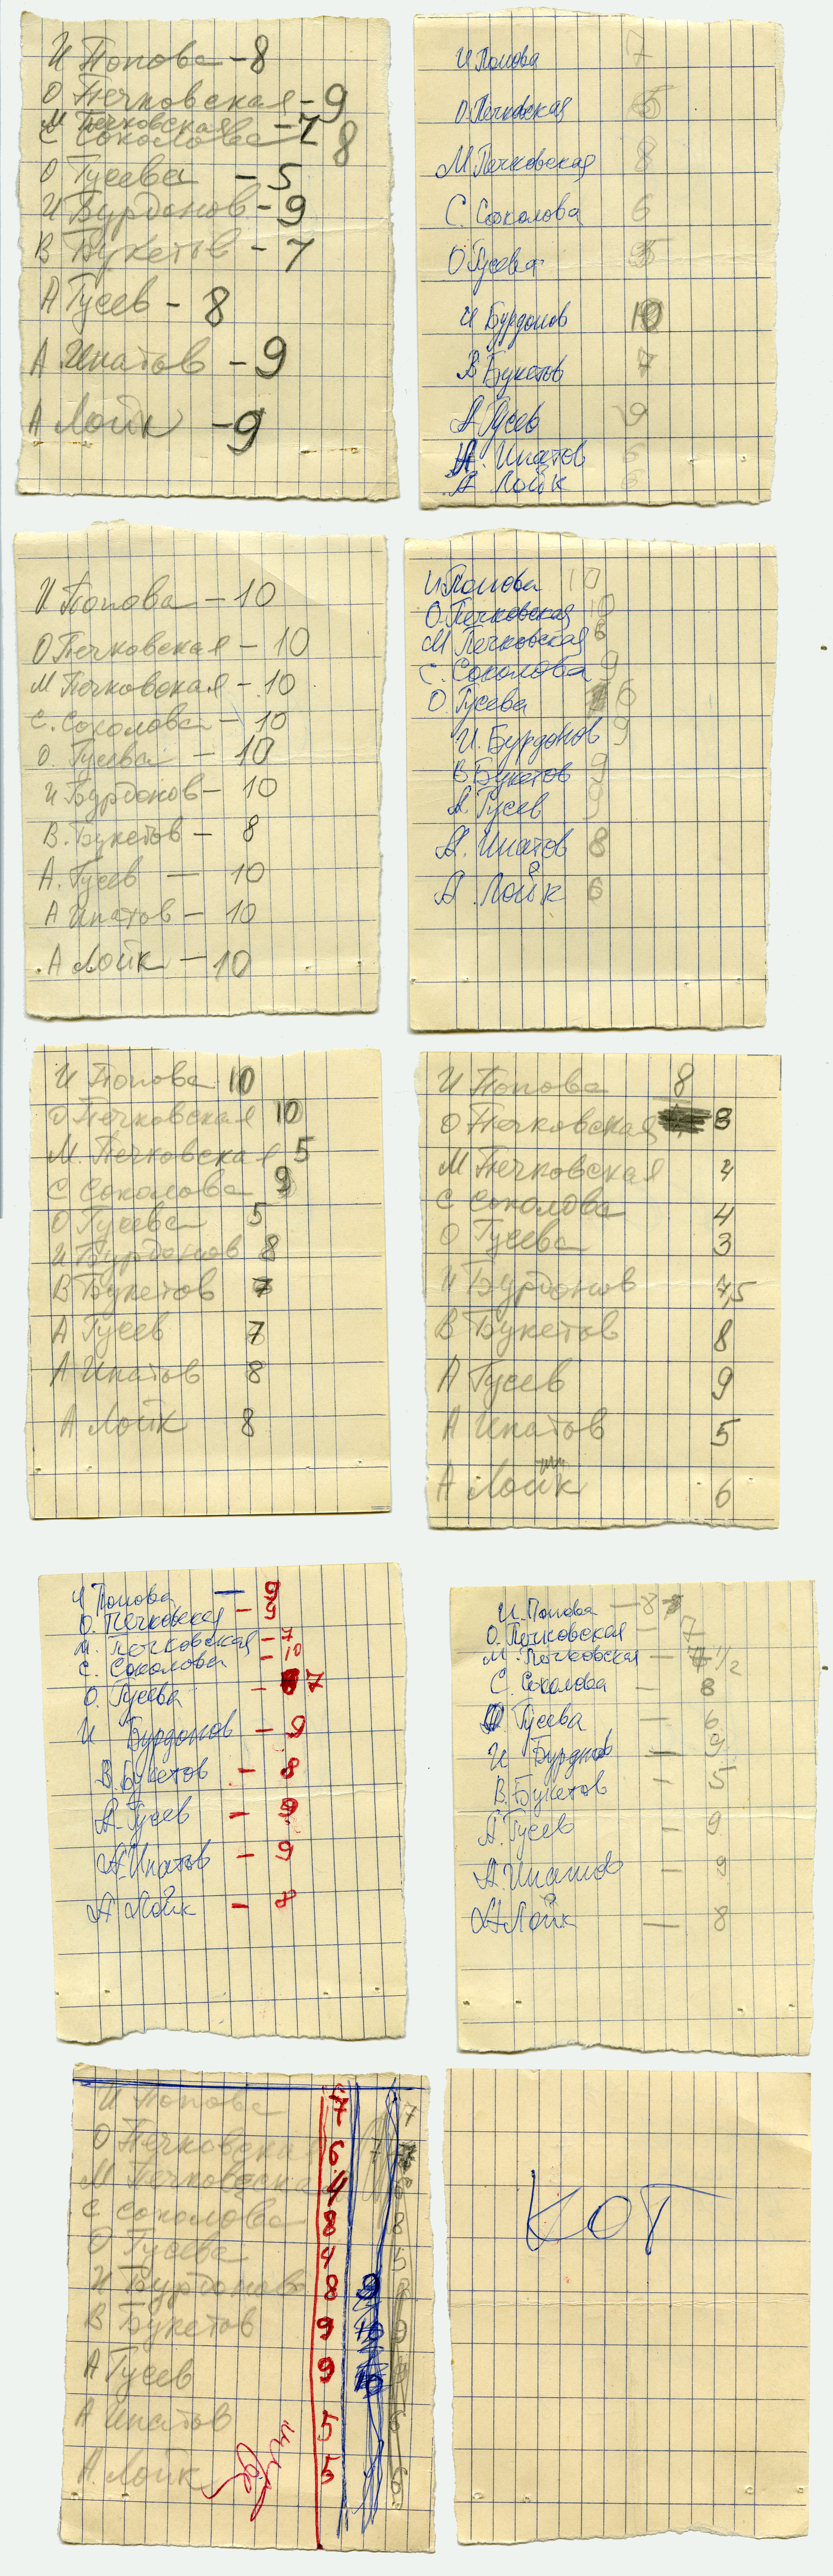 И Попова - 8
О Печковская - 9
М Печковская - 7
С Соколова 8
О Гусева - 5
И Бурдонов - 9
В Букетов - 7
А Гусев - 8
А. Ипатов - 9
А Лойк - 9
И Попова 7
О. Печковская
М Печковская 8
С. Соколова 6
О Гусева 5
И Бурдонов 10
В Букетов 7
А Гусев 9
А. Ипатов 6
А. Лойк 6
И Попова - 10
О Печковская - 10
М Печковская - 10
С. Соколова - 10
О. Гусева - 10
И Бурдонов - 10
В. Букетов - 8
А. Гусев - 10
А Ипатов - 10
А Лойк - 10
И Попова 10
О. Печковская 10
М Печковская 6
С. Соколова 9
О Гусева 6
И. Бурдонов 9
В Букетов 9
А. Гусев 9
А. Ипатов 8
А. Лойк 6
И Попова 10
О Печковская 10
М. Печковская 5
С Соколова 9
О Гусева 5
И Бурдонов 8
В Букетов 7
А Гусев 7
А Ипатов 8
А Лойк 8
И Попова 8
О Печковская 8
М Печковская
С Соколова 4
О Гусева 3
И Бурдонов 7,5
В Букетов 8
А Гусев 9
А Ипатов 5
А Лойк 6
И Попова - 9
О. Печковская -
М. Печковская - 7
С. Соколова - 10
О. Гусева - 7
И Бурдонов - 9
В. Букетов - 8
А. Гусев - 9
А. Ипатов - 9
А Лойк - 8
И. Попова - 8
О. Печковская - 7
М. Печковская - 7 1/2
С. Соколова - 8
О Гусева - 6
И Бурднов - 9
В. Букетов - 5
А. Гусев - 9
А. Ипатов - 9
А Лойк - 8
И Попова 7 7
О Печковская 6 7
М Печковская 4 6
С Соколова 8 8
О Гусева 4 5
И Бурдонов 8 9
В Букетов 9 10 9
А Гусев 9 10
А Ипатов 5 6
А. Лойк 5 6
КОТ